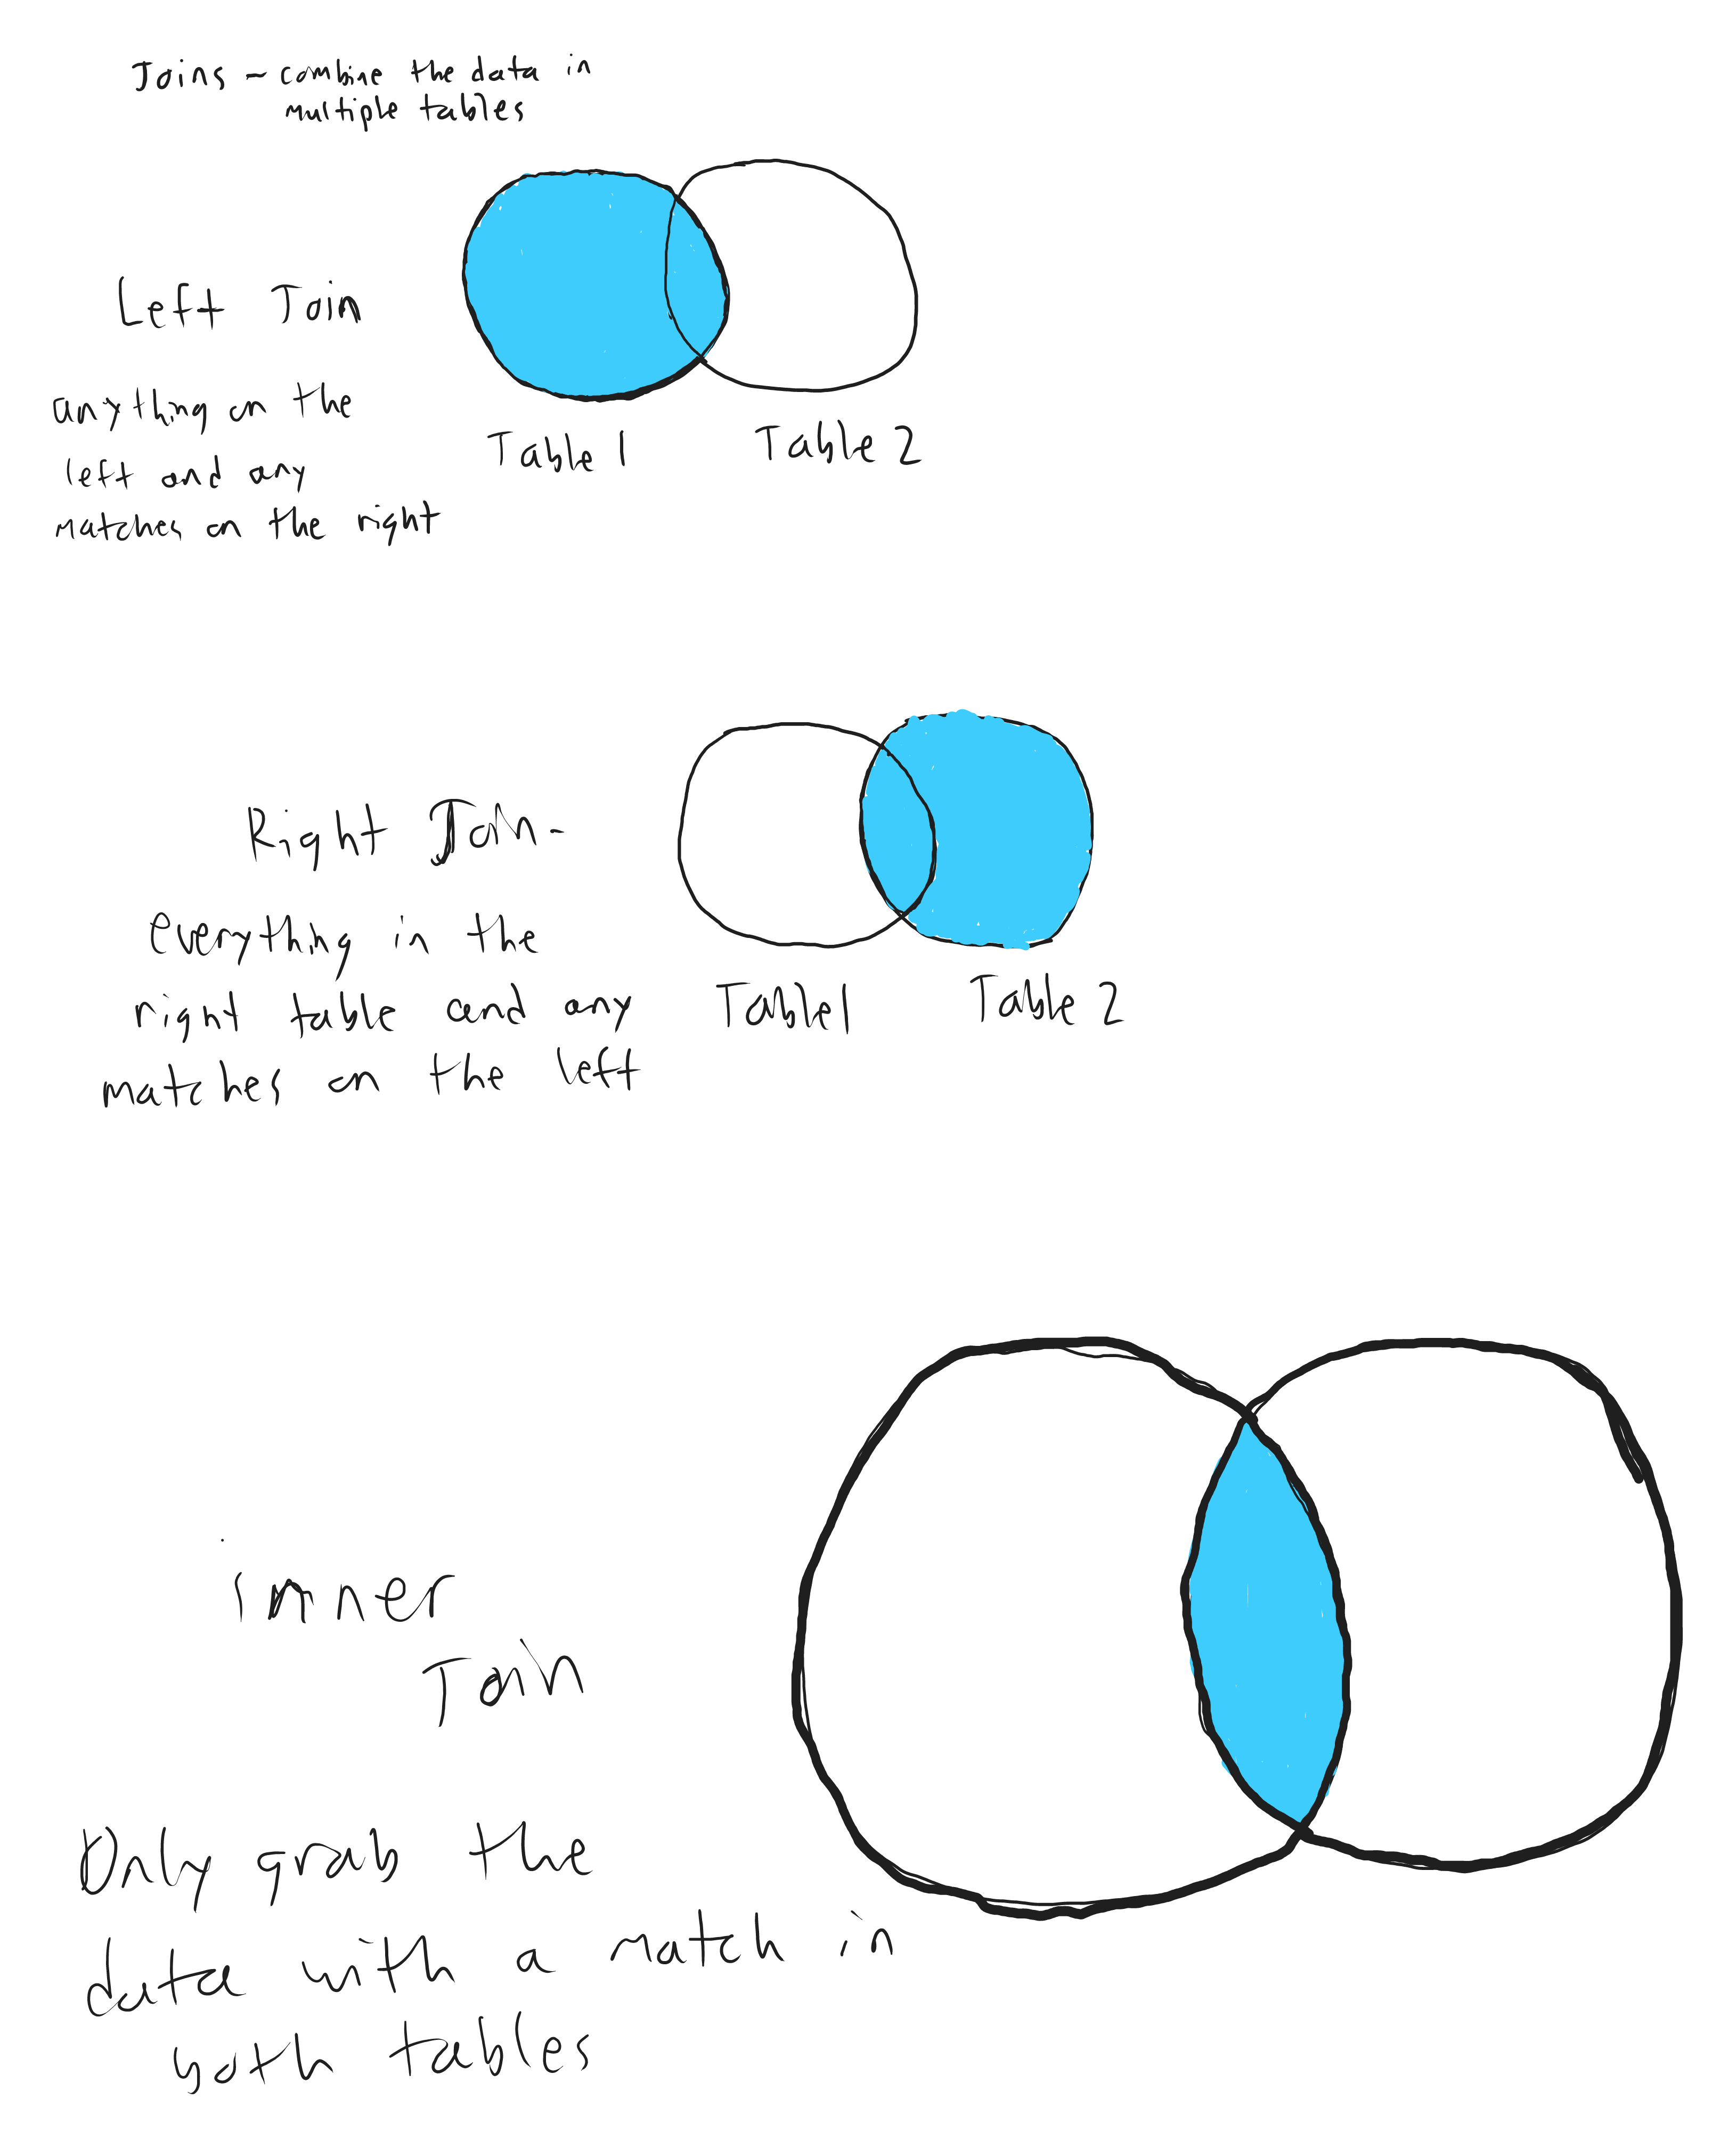 Joins - combine the data in
multiple tables
Left Join
anything on the
left and any
matches on the right
Table 1
Table 2
Right Join -
everything in the
right table and any
matches on the left
Table 1
Table 2
inner
Join
Only grab the
data with a match in
both tables